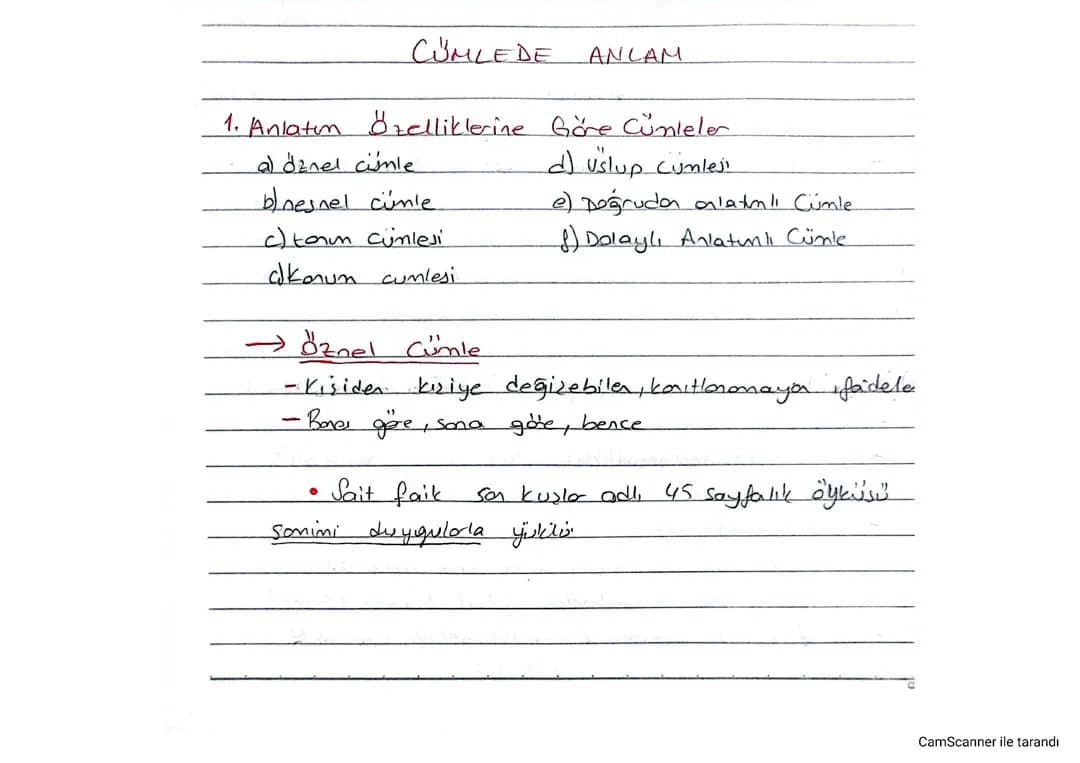 CÜMLEDE ANLAM
1. Anlatım Özelliklerine Göre Cümleler
a) öznel cümle
b) nesnel cümle
c) tanım cümlesi
d) Konum cumlesi
d) Üslup cümlesi
e) Doğrudan anlatımlı Cümle
f) Dolaylı Anlatımlı Cümle
→ Öznel Cümle
- Kişiden kişiye değişebilen, kanıtlanamayan ifadele
- Bana göre, sana göre, bence
• Sait faik son kuşlar adlı 45 sayfalık öyküsü
samimi duygularla yüklü
CamScanner ile tarandı